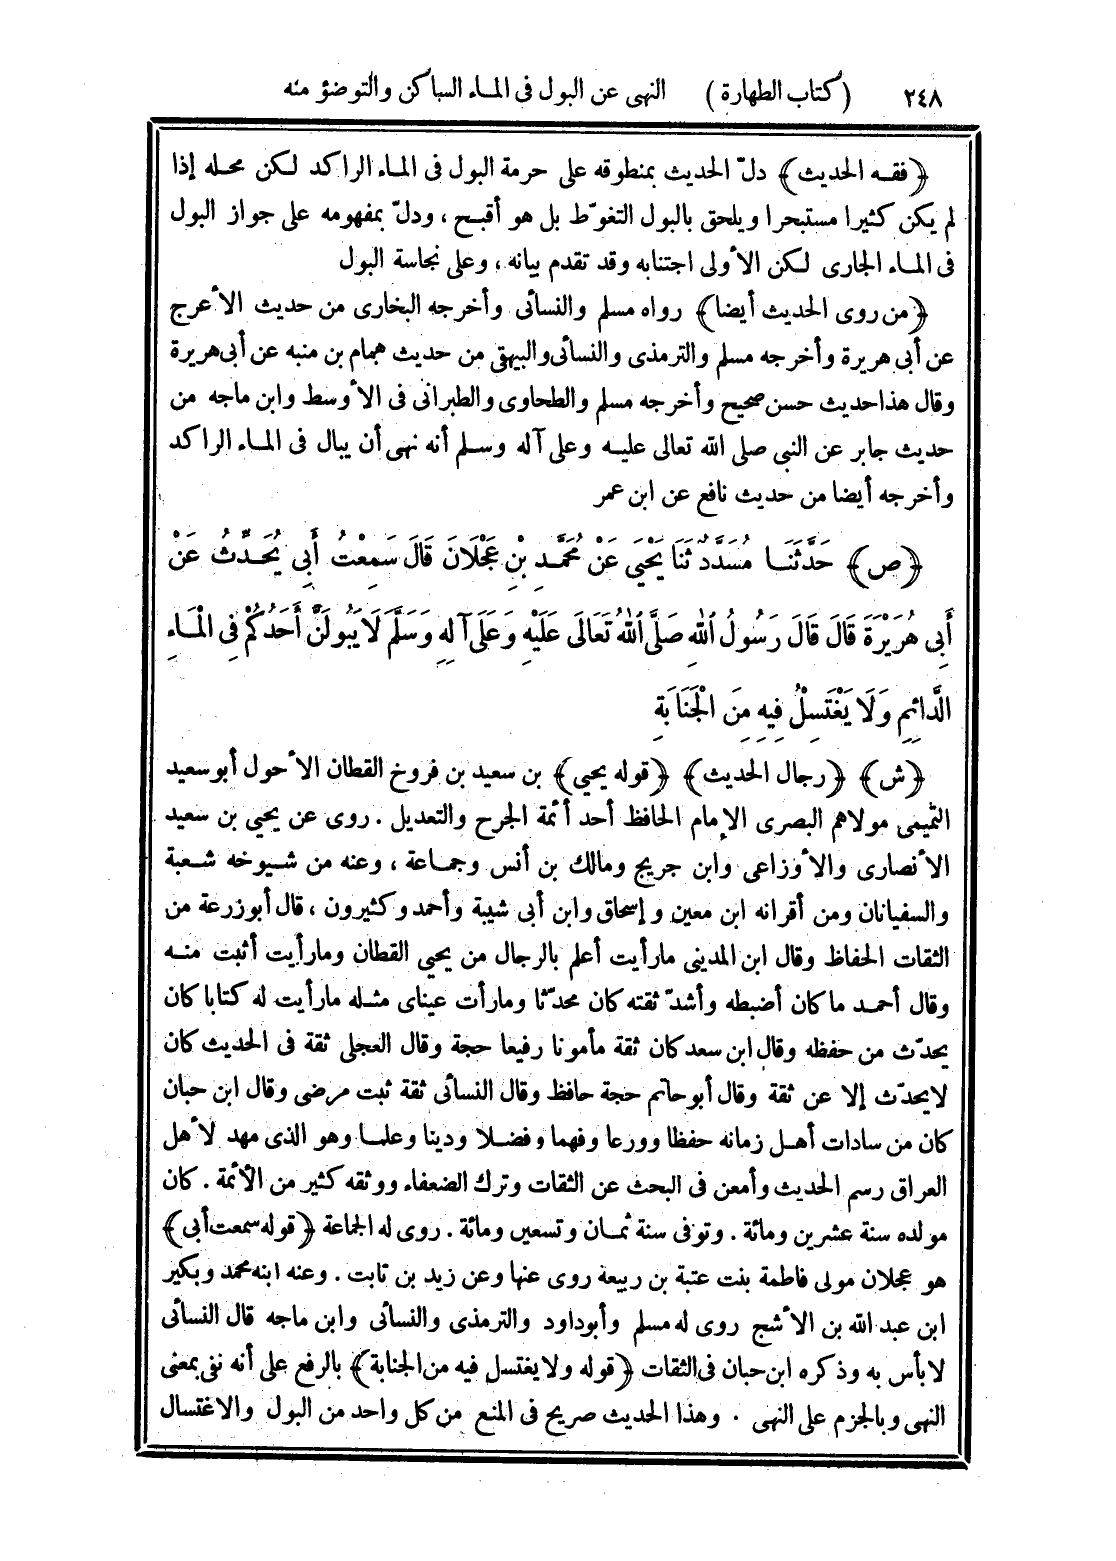 ٢٤٨ (كتاب الطهارة) النهى عن البول فى الماء الساكن والتوضؤ منه
﴿فقه الحديث﴾ دلّ الحديث بمنطوقه على حرمة البول فى الماء الراكد لكن محله إذا
لم يكن كثيرا مستبحرا ويلحق بالبول التغوّط بل هو أقبح ، ودلّ بمفهومه على جواز البول
فى الماء الجارى لكن الأولى اجتنابه وقد تقدم بيانه ، وعلى نجاسة البول
﴿من روى الحديث أيضا﴾ رواه مسلم والنسائى وأخرجه البخارى من حديث الأعرج
عن أبى هريرة وأخرجه مسلم والترمذى والنسائى والبيهقى من حديث همام بن منبه عن أبى هريرة
وقال هذا حديث حسن صحيح وأخرجه مسلم والطحاوى والطبرانى فى الأوسط وابن ماجه من
حديث جابر عن النبى صلى الله تعالى عليه وعلى آله وسلم أنه نهى أن يبال فى الماء الراكد
وأخرجه أيضا من حديث نافع عن ابن عمر
﴿ص﴾ حَدَّثَنَا مُسَدَّدٌ ثَنَا يَحْيَى عَنْ مُحَمَّدِ بْنِ عَجْلَانَ قَالَ سَمِعْتُ أَبِى يُحَدِّثُ عَنْ
أَبِى هُرَيْرَةَ قَالَ قَالَ رَسُولُ اللهِ صَلَّى اللهُ تَعَالَى عَلَيْهِ وَعَلَى آلِهِ وَسَلَّمَ لَا يَبُولَنَّ أَحَدُكُمْ فِى الْمَاءِ
الدَّائِمِ وَلَا يَغْتَسِلُ فِيهِ مِنَ الْجَنَابَةِ
﴿ش﴾ ﴿رجال الحديث﴾ ﴿قوله يحيى﴾ بن سعيد بن فروخ القطان الأحول أبو سعيد
التميمى مولاهم البصرى الإمام الحافظ أحد أئمة الجرح والتعديل . روى عن يحيى بن سعيد
الأنصارى والأوزاعى وابن جريج ومالك بن أنس وجماعة ، وعنه من شيوخه شعبة
والسفيانان ومن أقرانه ابن معين وإسحاق وابن أبى شيبة وأحمد وكثيرون ، قال أبو زرعة من
الثقات الحفاظ وقال ابن المدينى مارأيت أعلم بالرجال من يحيى القطان ومارأيت أثبت منه
وقال أحمد ما كان أضبطه وأشدّ ثقته كان محدّثا ومارأت عيناى مثله مارأيت له كتابا كان
يحدّث من حفظه وقال ابن سعد كان ثقة مأمونا رفيعا حجة وقال العجلى ثقة فى الحديث كان
لايحدّث إلا عن ثقة وقال أبو حاتم حجة حافظ وقال النسائى ثقة ثبت مرضى وقال ابن حبان
كان من سادات أهل زمانه حفظا وورعا وفهما وفضلا ودينا وعلما وهو الذى مهد لأهل
العراق رسم الحديث وأمعن فى البحث عن الثقات وترك الضعفاء ووثقه كثير من الأئمة . كان
مولده سنة عشرين ومائة . وتوفى سنة ثمان وتسعين ومائة . روى له الجماعة ﴿قوله سمعت أبى﴾
هو عجلان مولى فاطمة بنت عتبة بن ربيعة روى عنها وعن زيد بن ثابت . وعنه ابنه محمد وبكير
ابن عبد الله بن الأشج روى له مسلم وأبو داود والترمذى والنسائى وابن ماجه قال النسائى
لا بأس به وذكره ابن حبان فى الثقات ﴿قوله ولا يغتسل فيه من الجنابة﴾ بالرفع على أنه نفى بمعنى
النهى وبالجزم على النهى . وهذا الحديث صريح فى المنع من كل واحد من البول والاغتسال